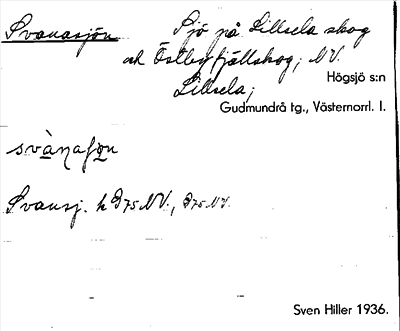 Svanasjön Sjö på Lillsela skog
och Östbyfjällskog; NV.
Lillsela;
Högsjö s:n
Gudmundrå tg., Västernorrl. l.
Svansj. k G75 NV., G75 NV.
Sven Hiller 1936.